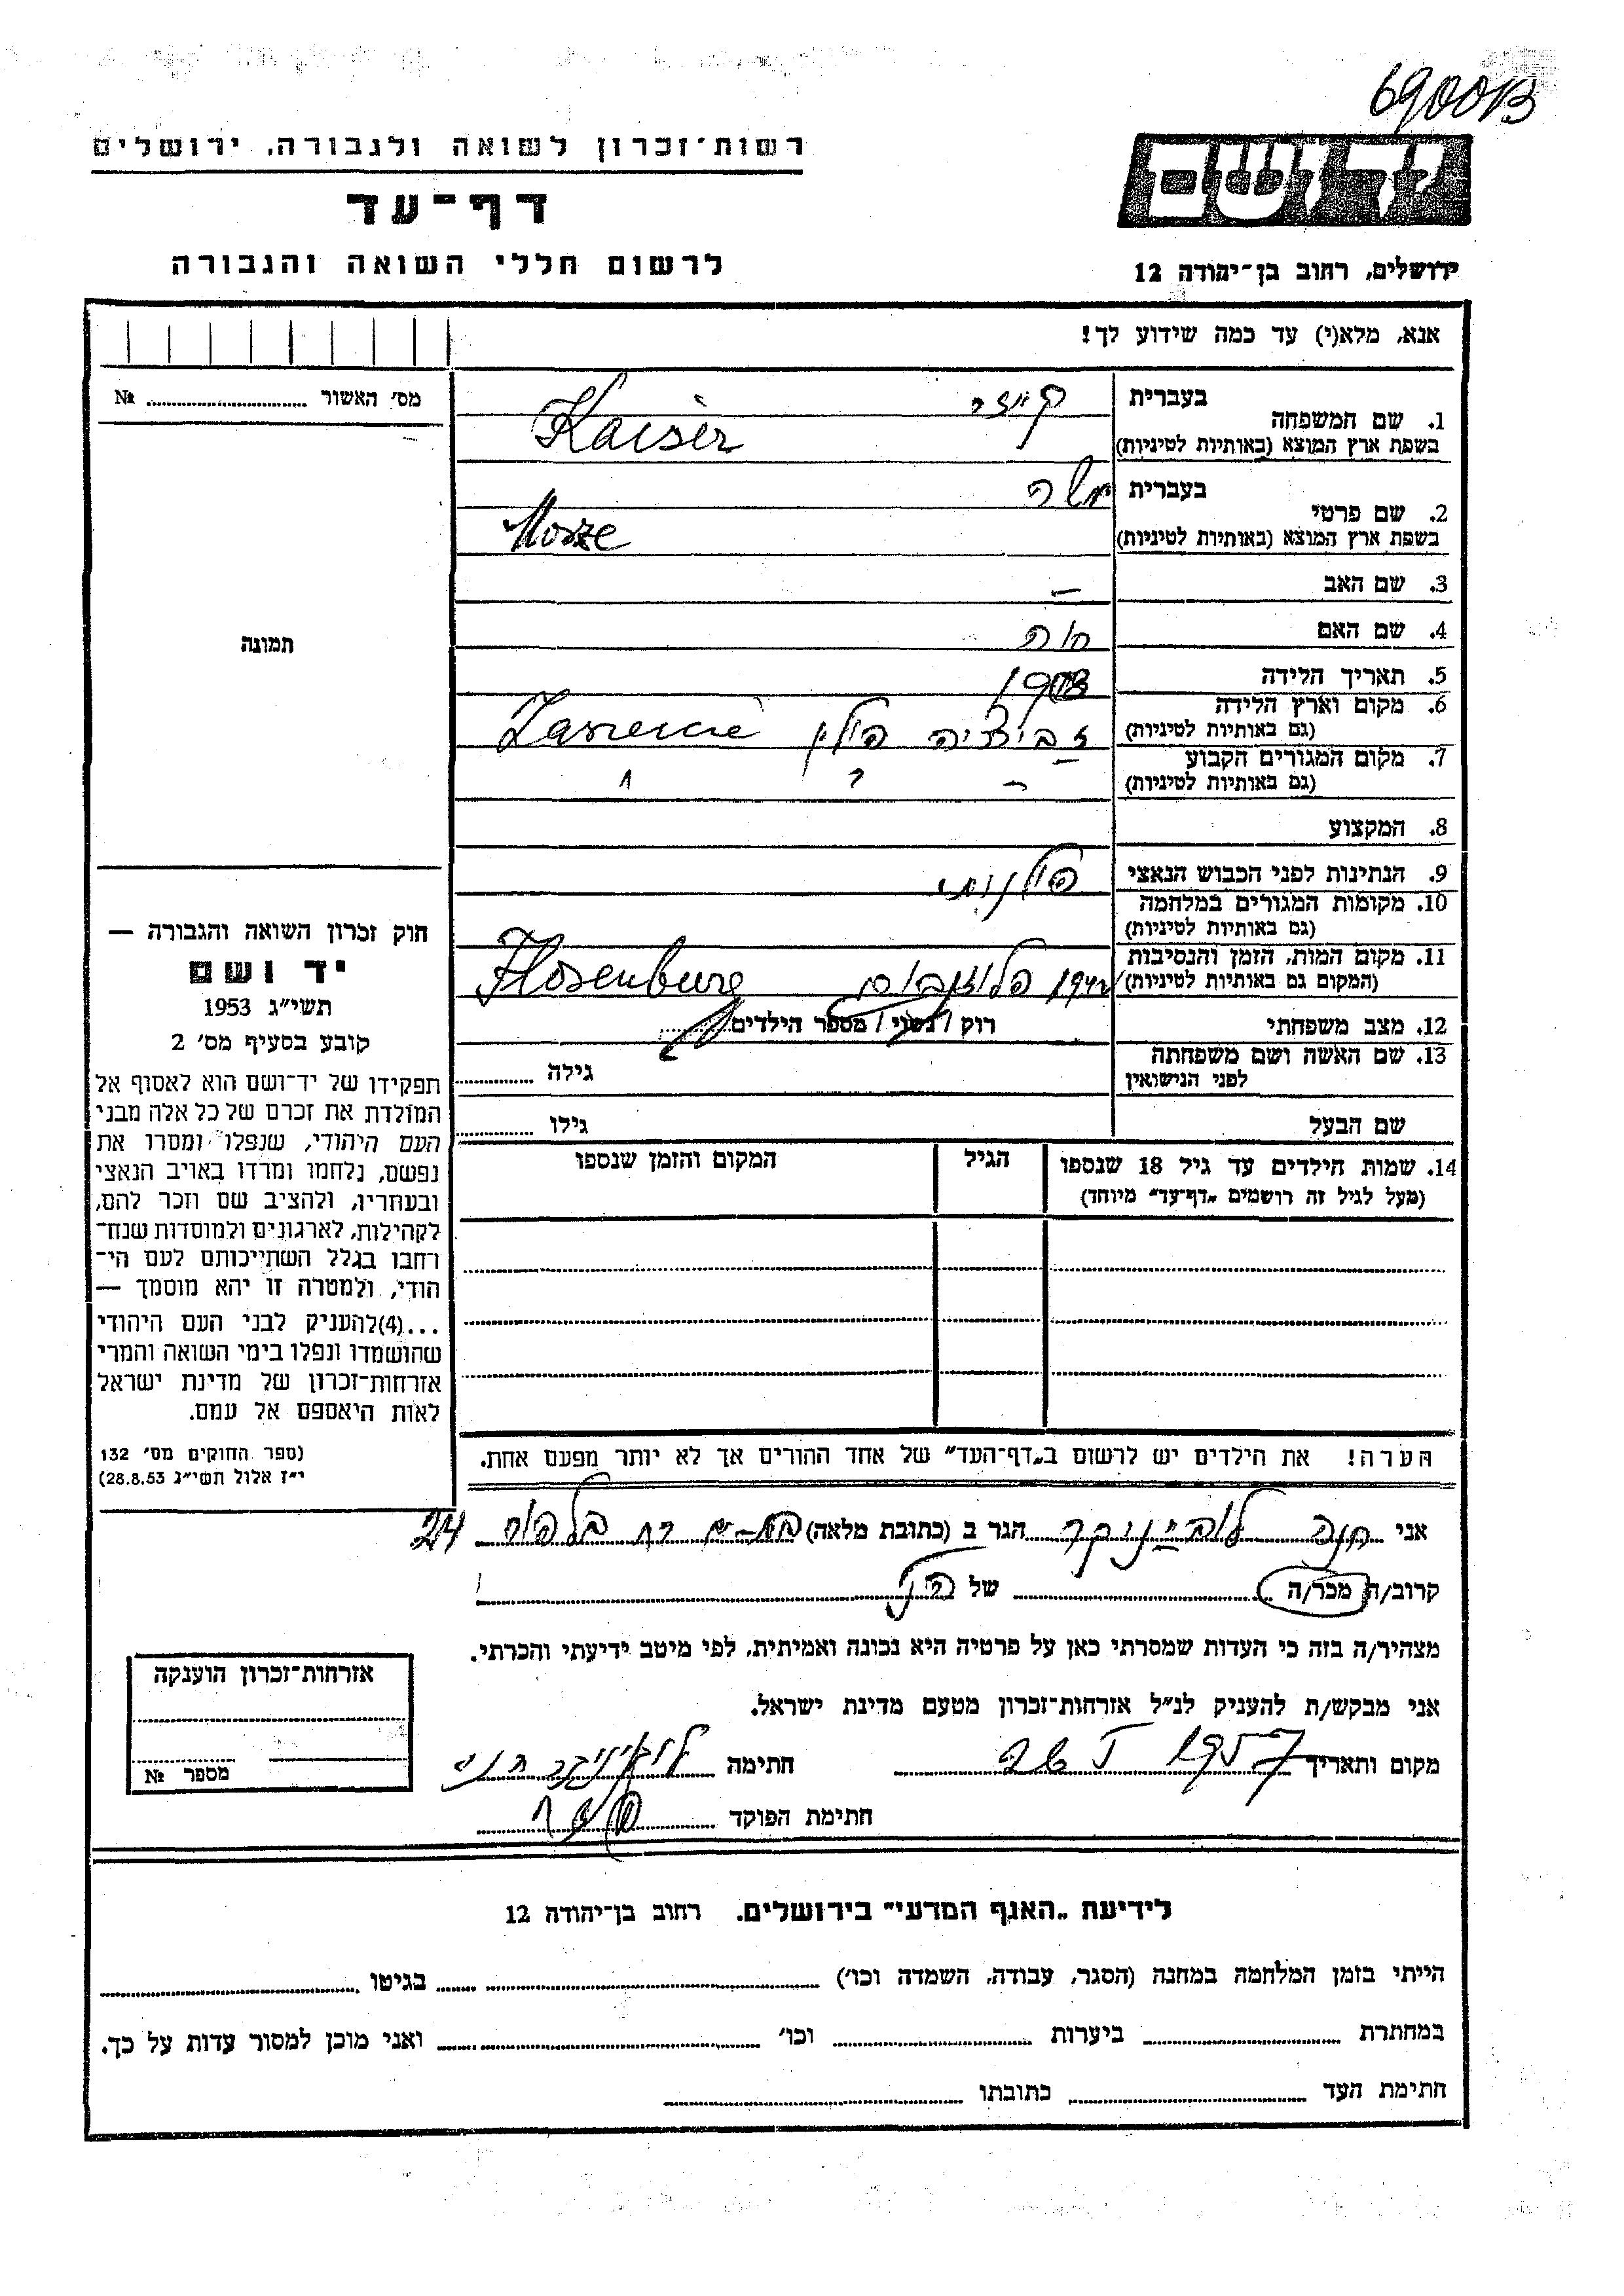 6900B
רשות־זכרון לשואה ולגבורה, ירושלים
יד ושם
דף־עד
לרשום חללי השואה והגבורה
ירושלים, רחוב בן־יהודה 12
אנא, מלא(י) עד כמה שידוע לך!
מס׳ האשור ........ №
1. שם המשפחה
בעברית
קייזר
בשפת ארץ המוצא (באותיות לטיניות)
Kaiser
2. שם פרטי
בעברית
משה
בשפת ארץ המוצא (באותיות לטיניות)
Mosze
3. שם האב —
4. שם האם חוה
5. תאריך הלידה
6. מקום וארץ הלידה
(גם באותיות לטיניות)
פולין
7. מקום המגורים הקבוע
(גם באותיות לטיניות)
8. המקצוע
9. הנתינות לפני הכבוש הנאצי פולנותי
10. מקומות המגורים במלחמה
(גם באותיות לטיניות)
11. מקום המות, הזמן והנסיבות
(המקום גם באותיות לטיניות)
Flosenburg
12. מצב משפחתי רוק / נשוי / מספר הילדים
13. שם האשה ושם משפחתה
לפני הנישואין
גילה
שם הבעל גילו
14. שמות הילדים עד גיל 18 שנספו הגיל המקום והזמן שנספו
(מעל לגיל זה רושמים „דף־עד״ מיוחד)
תמונה
חוק זכרון השואה והגבורה —
יד ושם
תשי״ג 1953
קובע בסעיף מס׳ 2
תפקידו של יד־ושם הוא לאסוף אל
המולדת את זכרם של כל אלה מבני
העם היהודי, שנפלו ומסרו את
נפשם, נלחמו ומרדו באויב הנאצי
ובעוזריו, ולהציב שם וזכר להם,
לקהילות, לארגונים ולמוסדות שנח־
רחבו בגלל השתייכותם לעם הי־
הודי, ולמטרה זו יהא מוסמך —
...(4)להעניק לבני העם היהודי
שהושמדו ונפלו בימי השואה והמרי
אזרחות־זכרון של מדינת ישראל
לאות היאספם אל עמם.
(ספר החוקים מס׳ 132
י״ז אלול תשי״ג 28.8.53)
הערה! את הילדים יש לרשום ב„דף־העד״ של אחד ההורים אך לא יותר מפעם אחת.
אני חנה הגר ב (כתובת מלאה) 24
קרוב/ה מכר/ה של
מצהיר/ה בזה כי העדות שמסרתי כאן על פרטיה היא נכונה ואמיתית, לפי מיטב ידיעתי והכרתי.
אני מבקש/ת להעניק לנ״ל אזרחות־זכרון מטעם מדינת ישראל.
מקום ותאריך חתימה
חתימת הפוקד
אזרחות־זכרון הוענקה
מספר №
לידיעת „האגף המדעי״ בירושלים. רחוב בן־יהודה 12
הייתי בזמן המלחמה במחנה (הסגר, עבודה, השמדה וכו׳) בגיטו
במחתרת ביערות וכו׳ ואני מוכן למסור עדות על כך.
חתימת העד כתובתו